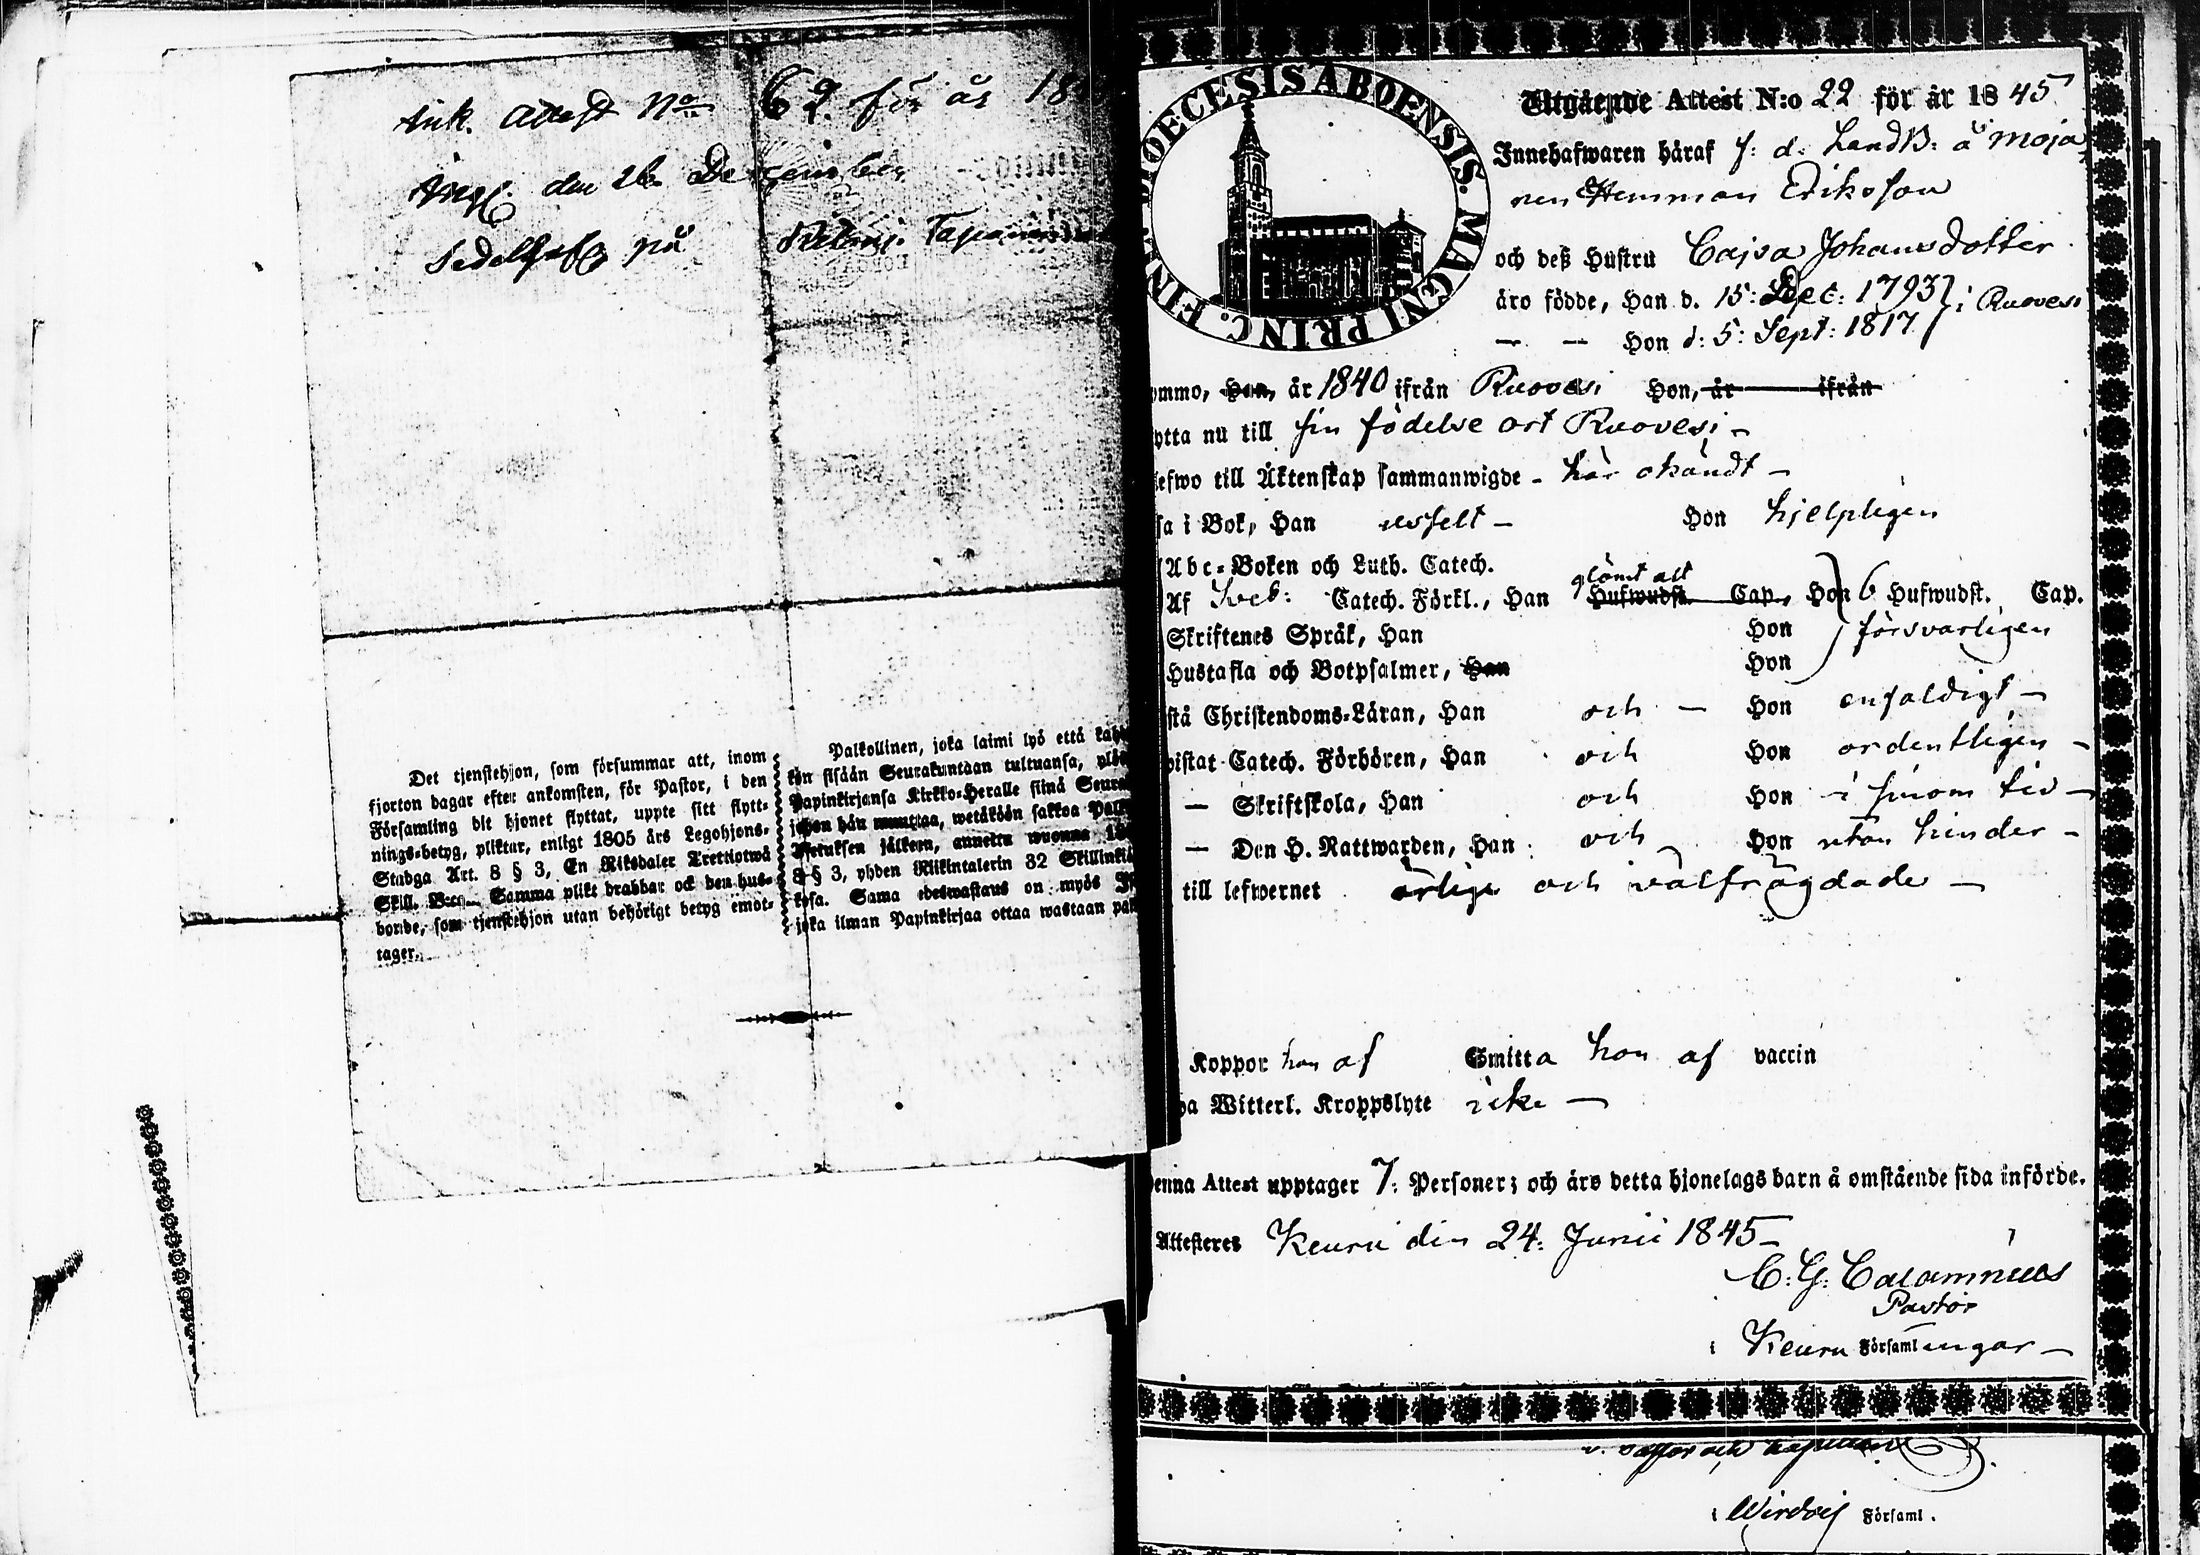 Ank. Attest No 62 för år 18
den 26 December
på
Det tjenstehjon, som försummar att, inom
fjorton dagar efter ankomsten, för Pastor, i den
Församling dit hjonet flyttat, uppte sitt flytt-
nings-betyg, pliktar, enligt 1805 års Legohjons-
Stadga Art. 8 § 3, En Riksdaler Trettiotwå
Skill. Bco. Samma plikt drabbar ock den hus-
bonde, som tjenstehjon utan behörigt betyg emot-
tager.
Palkollinen, joka laimi lyö että
sisään Seurakuntaan tultuansa,
Papinkirjansa Kirkko-Heralle siinä
johon hän muuttaa, wetäköön sakkoa
Asetuksen jälkeen, annettu wuonna
8 § 3, yhden Riikintalerin 32
Sama edeswastaus on myös
joka ilman Papinkirjaa ottaa wastaan
DIOECESIS ABOENSIS. MAGNI PRINC. FINL.
Utgående Attest N:o 22 för år 1845
Innehafwaren häraf f: d: LandB: å Moja
nen Hemman Eriksson
och deß Hustru Cajsa Johansdotter
äro födde, Han d. 15: Sept: 1793 } i Ruovesi
— — Hon d: 5: Sept: 1817
ommo, Han, år 1840 ifrån Ruovesi Hon, år ifrån
ytta nu till sin födelse ort Ruovesi –
lefwo till Äktenskap sammanwigde – här okändt –
sa i Bok, Han Hon hjelpligen
Abc-Boken och Luth. Catech.
Af Sveb: Catech. Förkl., Han glömt allt Hufwudst. Cap., Hon 6 Hufwudst. Cap.
Skriftenes Språk, Han Hon försvarligen
Hustafla och Botpsalmer, Han Hon
stå Christendoms-Läran, Han och – Hon enfaldigt –
wistat Catech. Förhören, Han och Hon ordentligen –
— Skriftskola, Han och Hon i sinom tid –
— Den H. Nattwarden, Han och Hon utan hinder –
till lefwernet ärlige och välfrägdade –
Koppor han af Smitta hon af vaccin
wa Witterl. Kroppslyte icke –
enna Attest upptager 7: Personer; och äro detta hjonelags barn å omstående sida införde.
Attesteres Keuru den 24: Junii 1845 –
C: G: Calamnius
Pastor
i Keuru Församlingar –
i Församl.